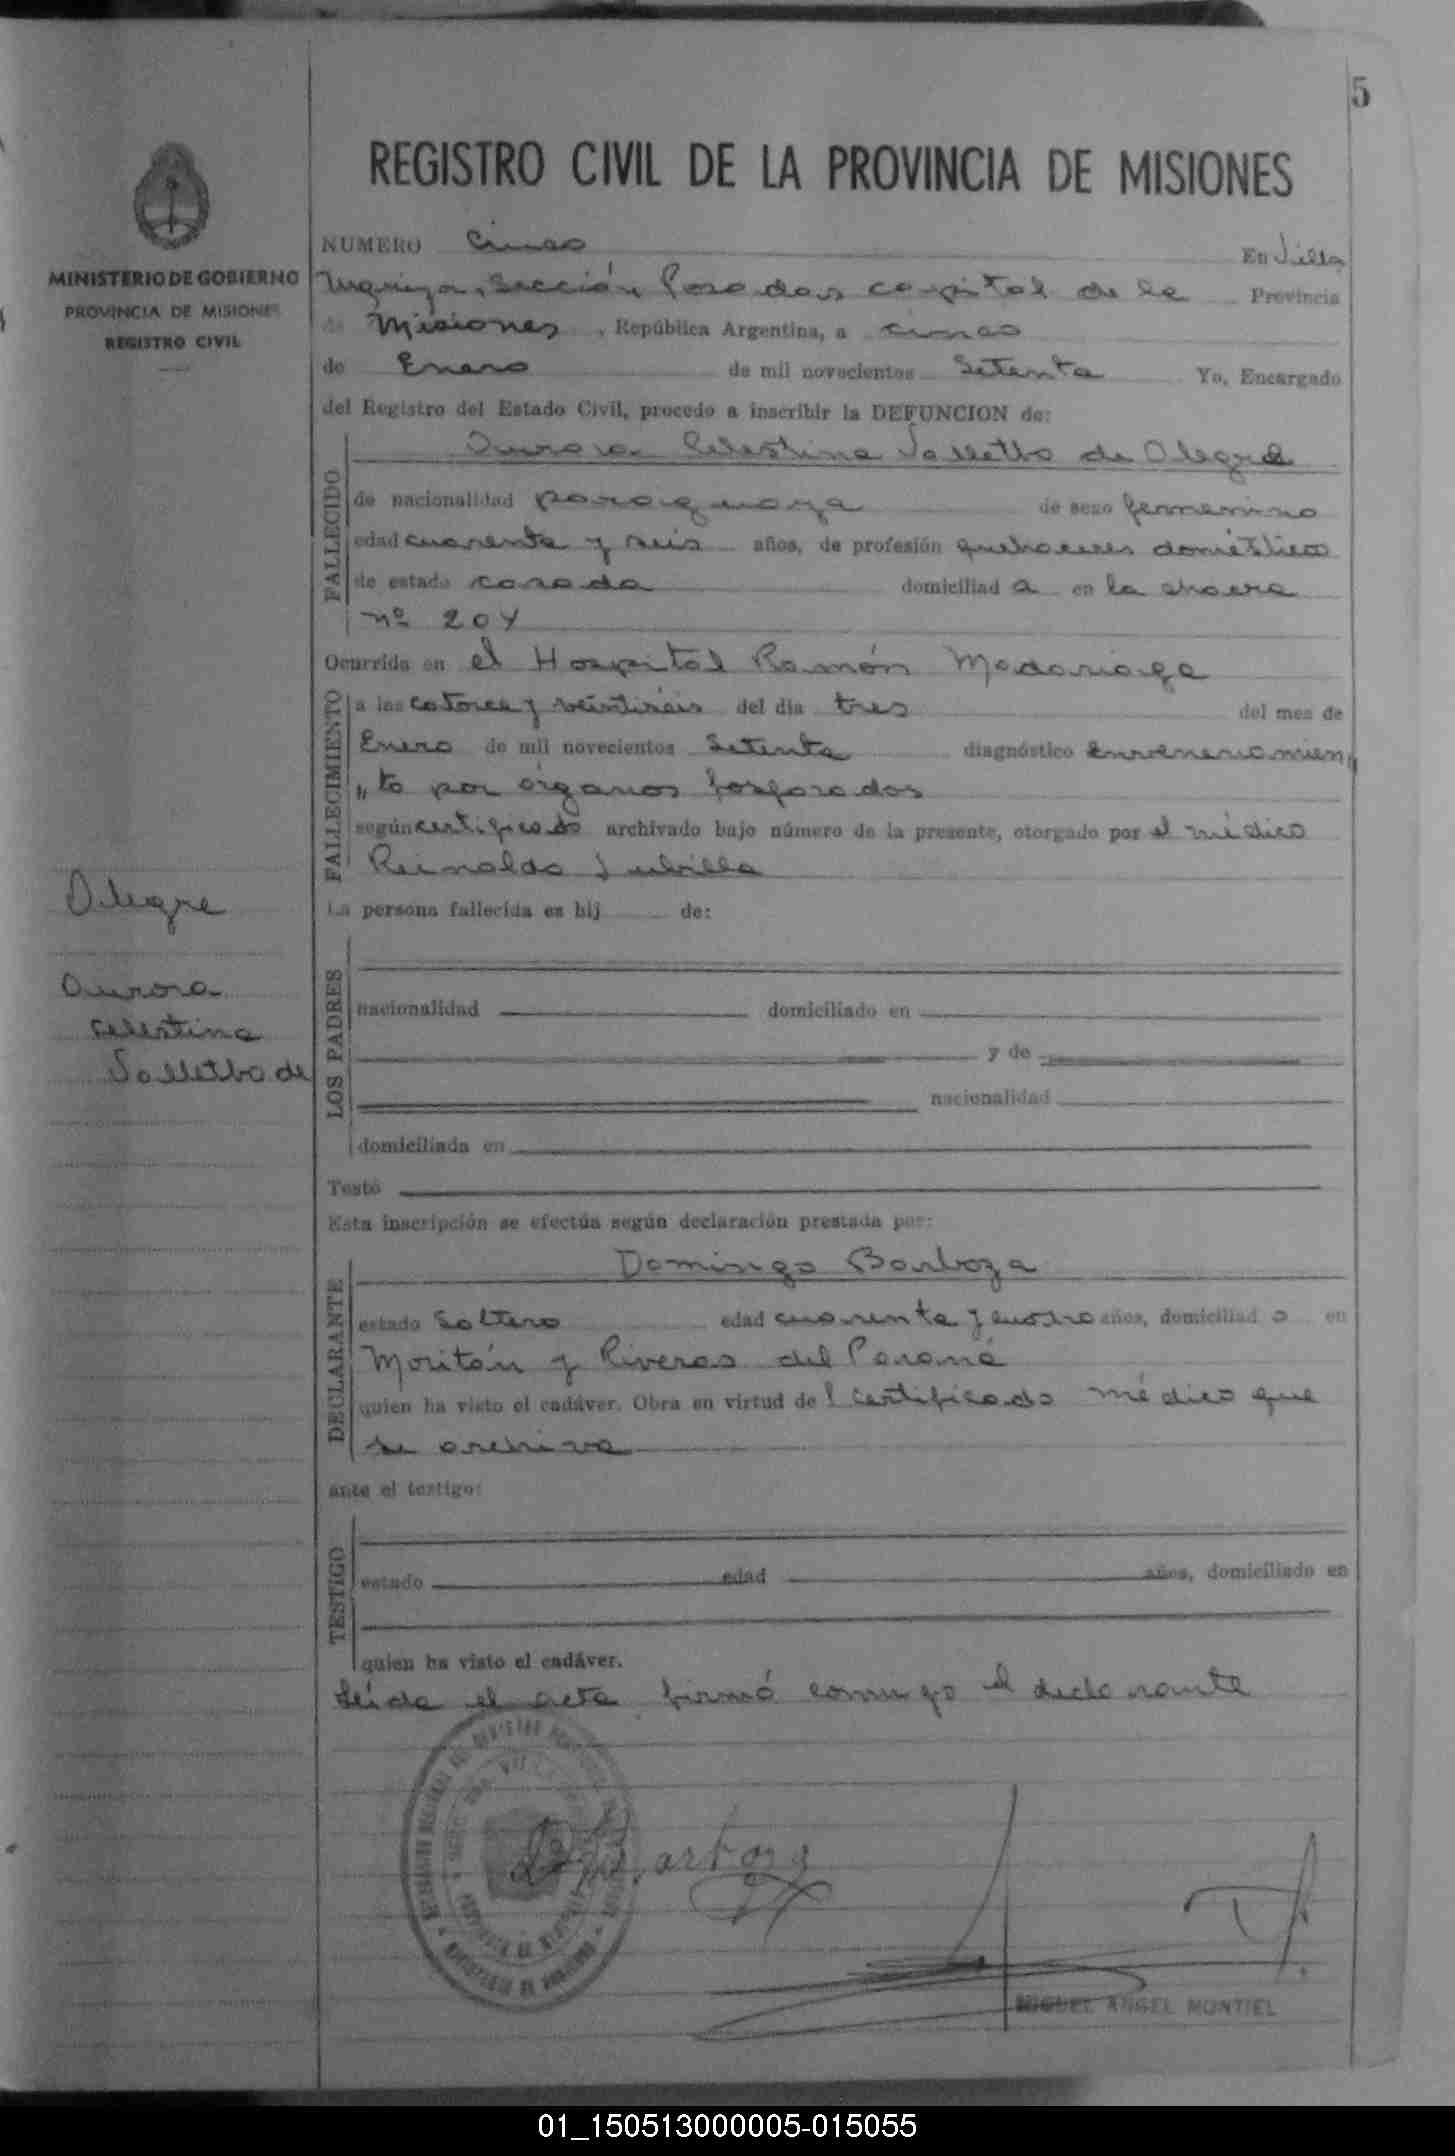 5
REGISTRO CIVIL DE LA PROVINCIA DE MISIONES
MINISTERIO DE GOBIERNO
PROVINCIA DE MISIONES
REGISTRO CIVIL
NUMERO Cinco En Villa
Urquiza, Sección Posadas capital de la Provincia
de Misiones, República Argentina, a cinco
de Enero de mil novecientos Setenta Yo, Encargado
del Registro del Estado Civil, procedo a inscribir la DEFUNCION de:
FALLECIDO
Aurora Celestina de Alegre
de nacionalidad paraguaya de sexo femenino
edad cuarenta y seis años, de profesión quehaceres doméstico
de estado casada domiciliad a en la chacra
nº 204
Ocurrida en el Hospital Ramón Madariaga
FALLECIMIENTO
a las catorce y veintiséis del día tres del mes de
Enero de mil novecientos Setenta diagnóstico Envenenamien
"to por órganos fosforados
según certificado archivado bajo número de la presente, otorgado por el médico
Reinaldo
La persona fallecida es hij de:
Alegre
Aurora
Celestina
de
LOS PADRES
nacionalidad domiciliado en
y de
nacionalidad
domiciliada en
Testó
Esta inscripción se efectúa según declaración prestada por:
DECLARANTE
Domingo Barboza
estado Soltero edad cuarenta y cuatro años, domiciliad o en
y Riveras del Paraná
quien ha visto el cadáver. Obra en virtud de l certificado médico que
se archiva
ante el testigo:
TESTIGO
estado edad años, domiciliado en
quien ha visto el cadáver.
Leída el acta firmó conmigo el declarante
Barboza
MIGUEL ANGEL MONTIEL
01_150513000005-015055